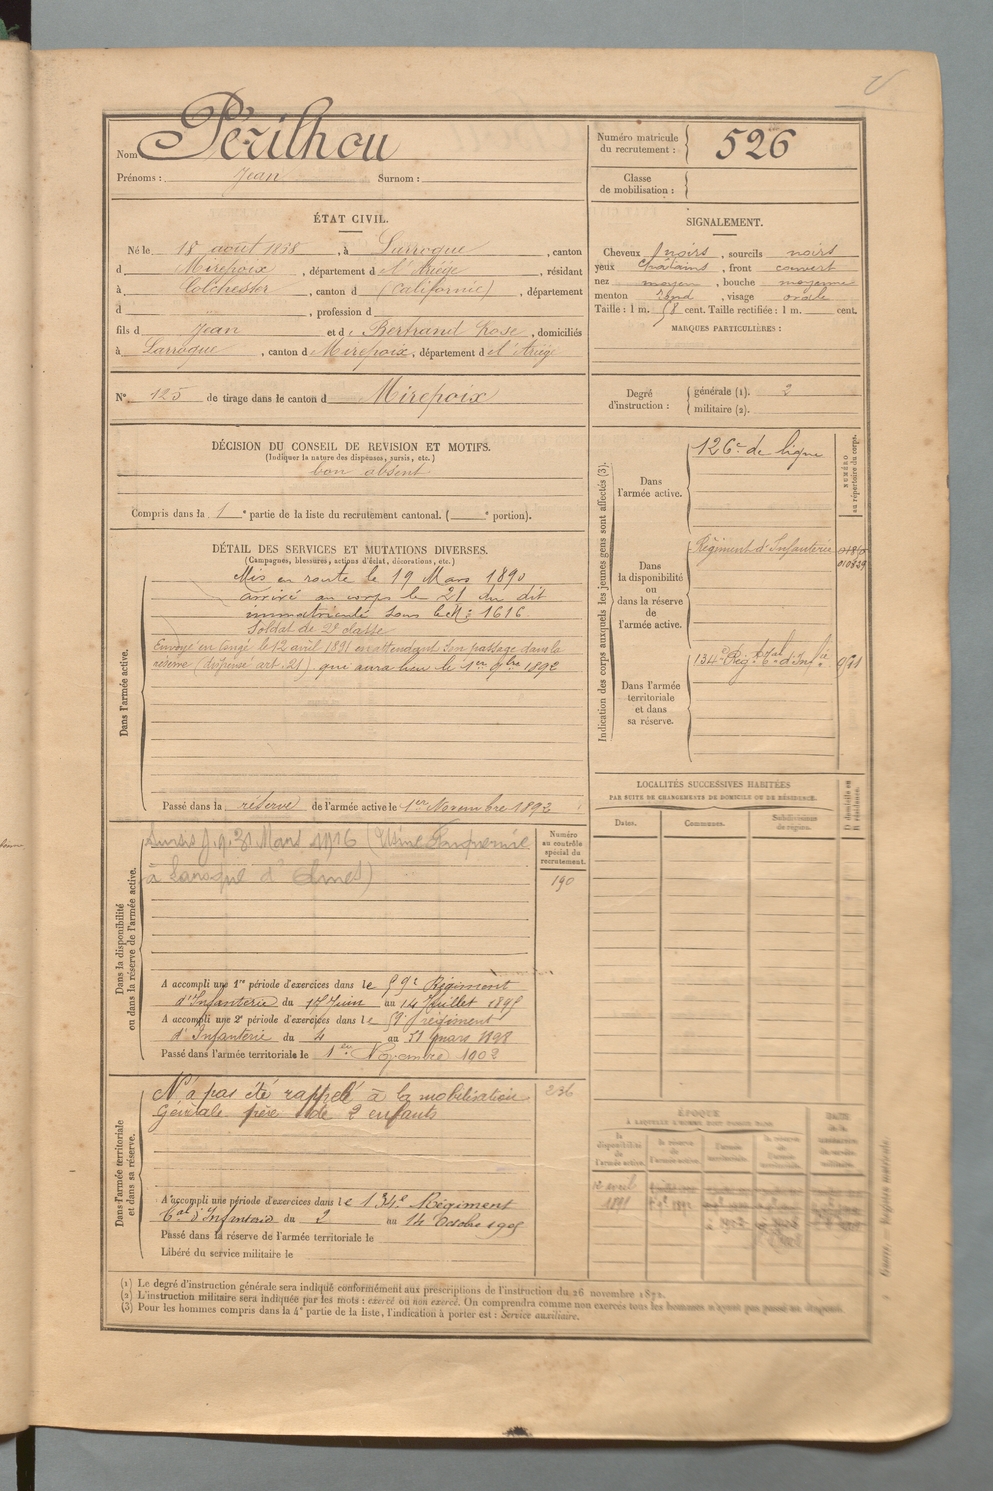 Nom Périlhou
Prénoms : Jean Surnom :
Numéro matricule du recrutement : 526
Classe de mobilisation :
ÉTAT CIVIL.
Né le 18 août 1868, à Larroque, canton
d Mirepoix, département d e l'Ariège, résidant
à Colchester, canton d (Californie), département
d , profession d
fils d Jean et de Bertrand Rose, domiciliés
à Larroque, canton d Mirepoix, département d e l'Ariège
N° 125 de tirage dans le canton d Mirepoix
DÉCISION DU CONSEIL DE REVISION ET MOTIFS.
(Indiquer la nature des dispenses, sursis, etc.)
bon absent
Compris dans la 1e partie de la liste du recrutement cantonal. ( e portion).
DÉTAIL DES SERVICES ET MUTATIONS DIVERSES.
(Campagnes, blessures, actions d'éclat, décorations, etc.)
Dans l'armée active.
Mis en route le 19 Mars 1890
arrivé au corps le 21 du dit
immatriculé sous le N° 1616
Soldat de 2e classe
Envoyé en congé le 12 avril 1891 en attendant son passage dans la
réserve (dispensé art. 21) qui aura lieu le 1er 9bre 1892
Passé dans la réserve de l'armée active le 1er Novembre 1892
Dans la disponibilité
ou dans la réserve de l'armée active.
Sursis j.q. 31 Mars 1916 (Usine
à Laroque d'Olmes)
Numéro
au contrôle
spécial du
recrutement.
190
A accompli une 1re période d'exercices dans le 59e Régiment
d'Infanterie du 17 Juin au 14 Juillet 1895
A accompli une 2e période d'exercices dans le 59e régiment
d'Infanterie du 4 au 31 mars 1898
Passé dans l'armée territoriale le 1er Novembre 1902
Dans l'armée territoriale
et dans sa réserve.
N'a pas été rappelé à la mobilisation
Générale père de 2 enfants
236
A accompli une période d'exercices dans le 134e Régiment
tal d'Infanterie du 2 au 14 Octobre 1905
Passé dans la réserve de l'armée territoriale le
Libéré du service militaire le
SIGNALEMENT.
Cheveux noirs, sourcils noirs
yeux châtains, front couvert
nez moyen, bouche moyenne
menton rond, visage ovale
Taille : 1 m. 58 cent. Taille rectifiée : 1 m. cent.
MARQUES PARTICULIÈRES :
Degré d'instruction : générale (1). 2
militaire (2).
Indication des corps auxquels les jeunes gens sont affectés (3).
NUMÉRO
au répertoire du corps.
Dans
l'armée active.
126e de ligne
Dans
la disponibilité
ou dans la réserve
de
l'armée active.
Régiment d'Infanterie
Dans l'armée
territoriale
et dans
sa réserve.
134e Rég. tal d'Infie
LOCALITÉS SUCCESSIVES HABITÉES
PAR SUITE DE CHANGEMENTS DE DOMICILE OU DE RÉSIDENCE.
Dates. Communes. Subdivisions
de région.
D domicile ou
R résidence.
ÉPOQUE
À LAQUELLE L'HOMME DOIT PASSER DANS
la
disponibilité
de
l'armée active.
la réserve
de
l'armée active.
l'armée
territoriale.
la réserve
de
l'armée
territoriale.
12 avril
1891
(1) Le degré d'instruction générale sera indiqué conformément aux prescriptions de l'instruction du 26 novembre 1872.
(2) L'instruction militaire sera indiquée par les mots : exercé ou non exercé. On comprendra comme non exercés tous les hommes n'ayant pas passé au drapeau.
(3) Pour les hommes compris dans la 4e partie de la liste, l'indication à porter est : Service auxiliaire.